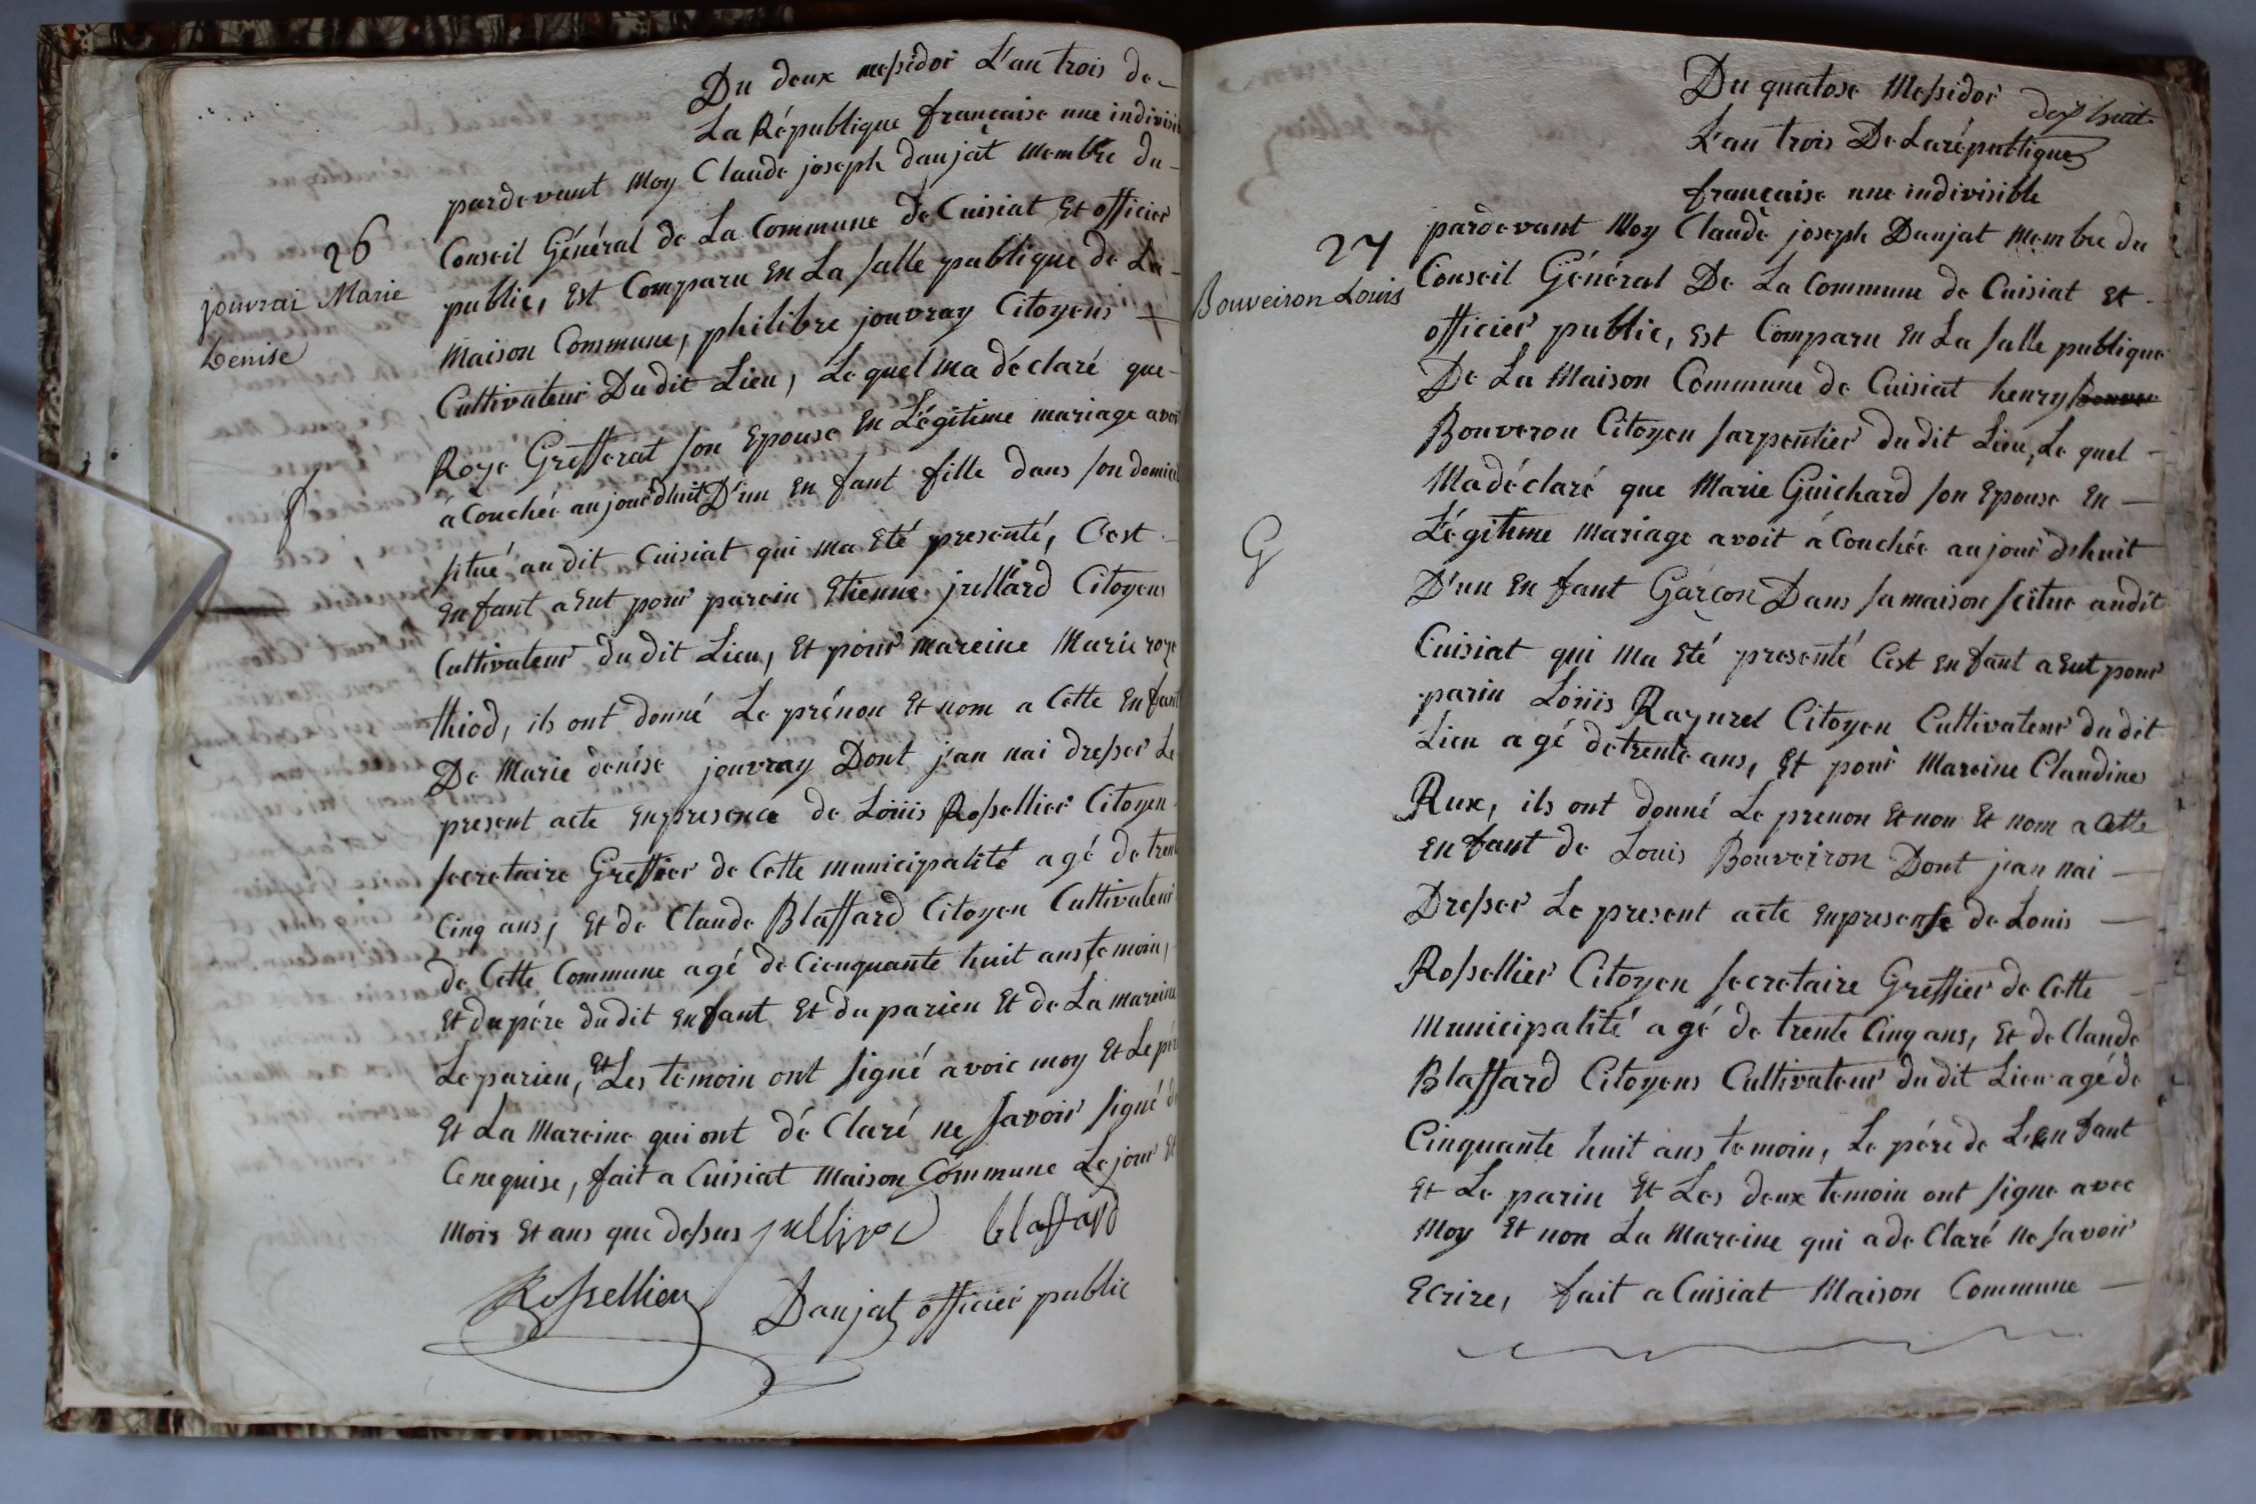 Du deux messidor L'an trois de
La République française une indivisi
pardevant Moy Claude joseph daujat Membre du
26
Conseil Général de La Commune de Cuisiat Et officier
jouvrai Marie
Denise
public, Est Comparu En La salle publique de La
Maison Commune, philibre jouvray Citoyens
Cultivateur Du dit Lieu, Le quel ma déclaré que
Roze Grefferat son Epouse En Légitime mariage avoi
à Couchée aujourdhuit D'un En fant fille dans son domici
f
situé au dit Cuisiat qui ma Eté presenté, Cest
En fant a Eut pour parein Etienne jullard Citoyens
Cultivateur du dit Lieu, Et pour mareine Marie roze
thiod, ils ont donné Le prénon Et nom a Cette En fant
De Marie denise jouvray Dont j'an nai dresser Le
present acte Enpresence de Loüis Rossellier Citoyen
secretaire Greffier de Cette municipalité agé de trente
Cinq ans, Et de Claude Blaffard Citoyen Cultivateur
de Cette Commune agé de Cienquante huit ans temoin,
Et du pére du dit Enfant Et du parien Et de La mareine
Le parien, Et Les temoin ont signé avoic moy Et Le pér
Et La Mareine qui ont dé Claré ne savoir signé d
Ce nequise, fait a Cuisiat Maison Commune Le jour Et
Mois Et ans que dessus jullard blaffard
Rossellier Daujat officier public
Du quatose Messidor
dix huit
L'an trois De Larépublique
française une indivisible
27
pardevant Moy Claude joseph Daujat Membre du
Bouveiron Louis
Conseil Général De La Commune de Cuisiat Et
officier public, Est Comparu En La salle publique
De La Maison Commune de Cuisiat henry
Bouveron Citoyen sarpentier du dit Lieu, Le quel
Madéclaré que Marie Guichard son Epouse En
Légitime Mariage avoit à Couchée au jour dhuit
G
D'un En fant Garçon Dans sa maison scitue audit
Cuisiat qui Ma Eté presenté Cest En fant a Eut pour
parin Loüis Raynrel Citoyen Cultivateur du dit
Lieu agé detrente ans, Et pour Mareine Claudine
Rux, ils ont donné Le prenon Et non Et nom a Cette
En fant de Louis Bouveiron Dont j'an nai
Dresser Le present acte Enpresense de Louis
Rossellier Citoyen secretaire Greffier de Cette
Municipalité agé de trente Cinq ans, Et de Claude
Blaffard Citoyens Cultivateur du dit Lieu agé de
Cinquante huit ans temoin, Le pére de Len fant
Et Le parin Et Les deux temoin ont signe avec
Moy Et non La Mareine qui a de Claré ne savoir
Ecrire, fait a Cuisiat Maison Commune